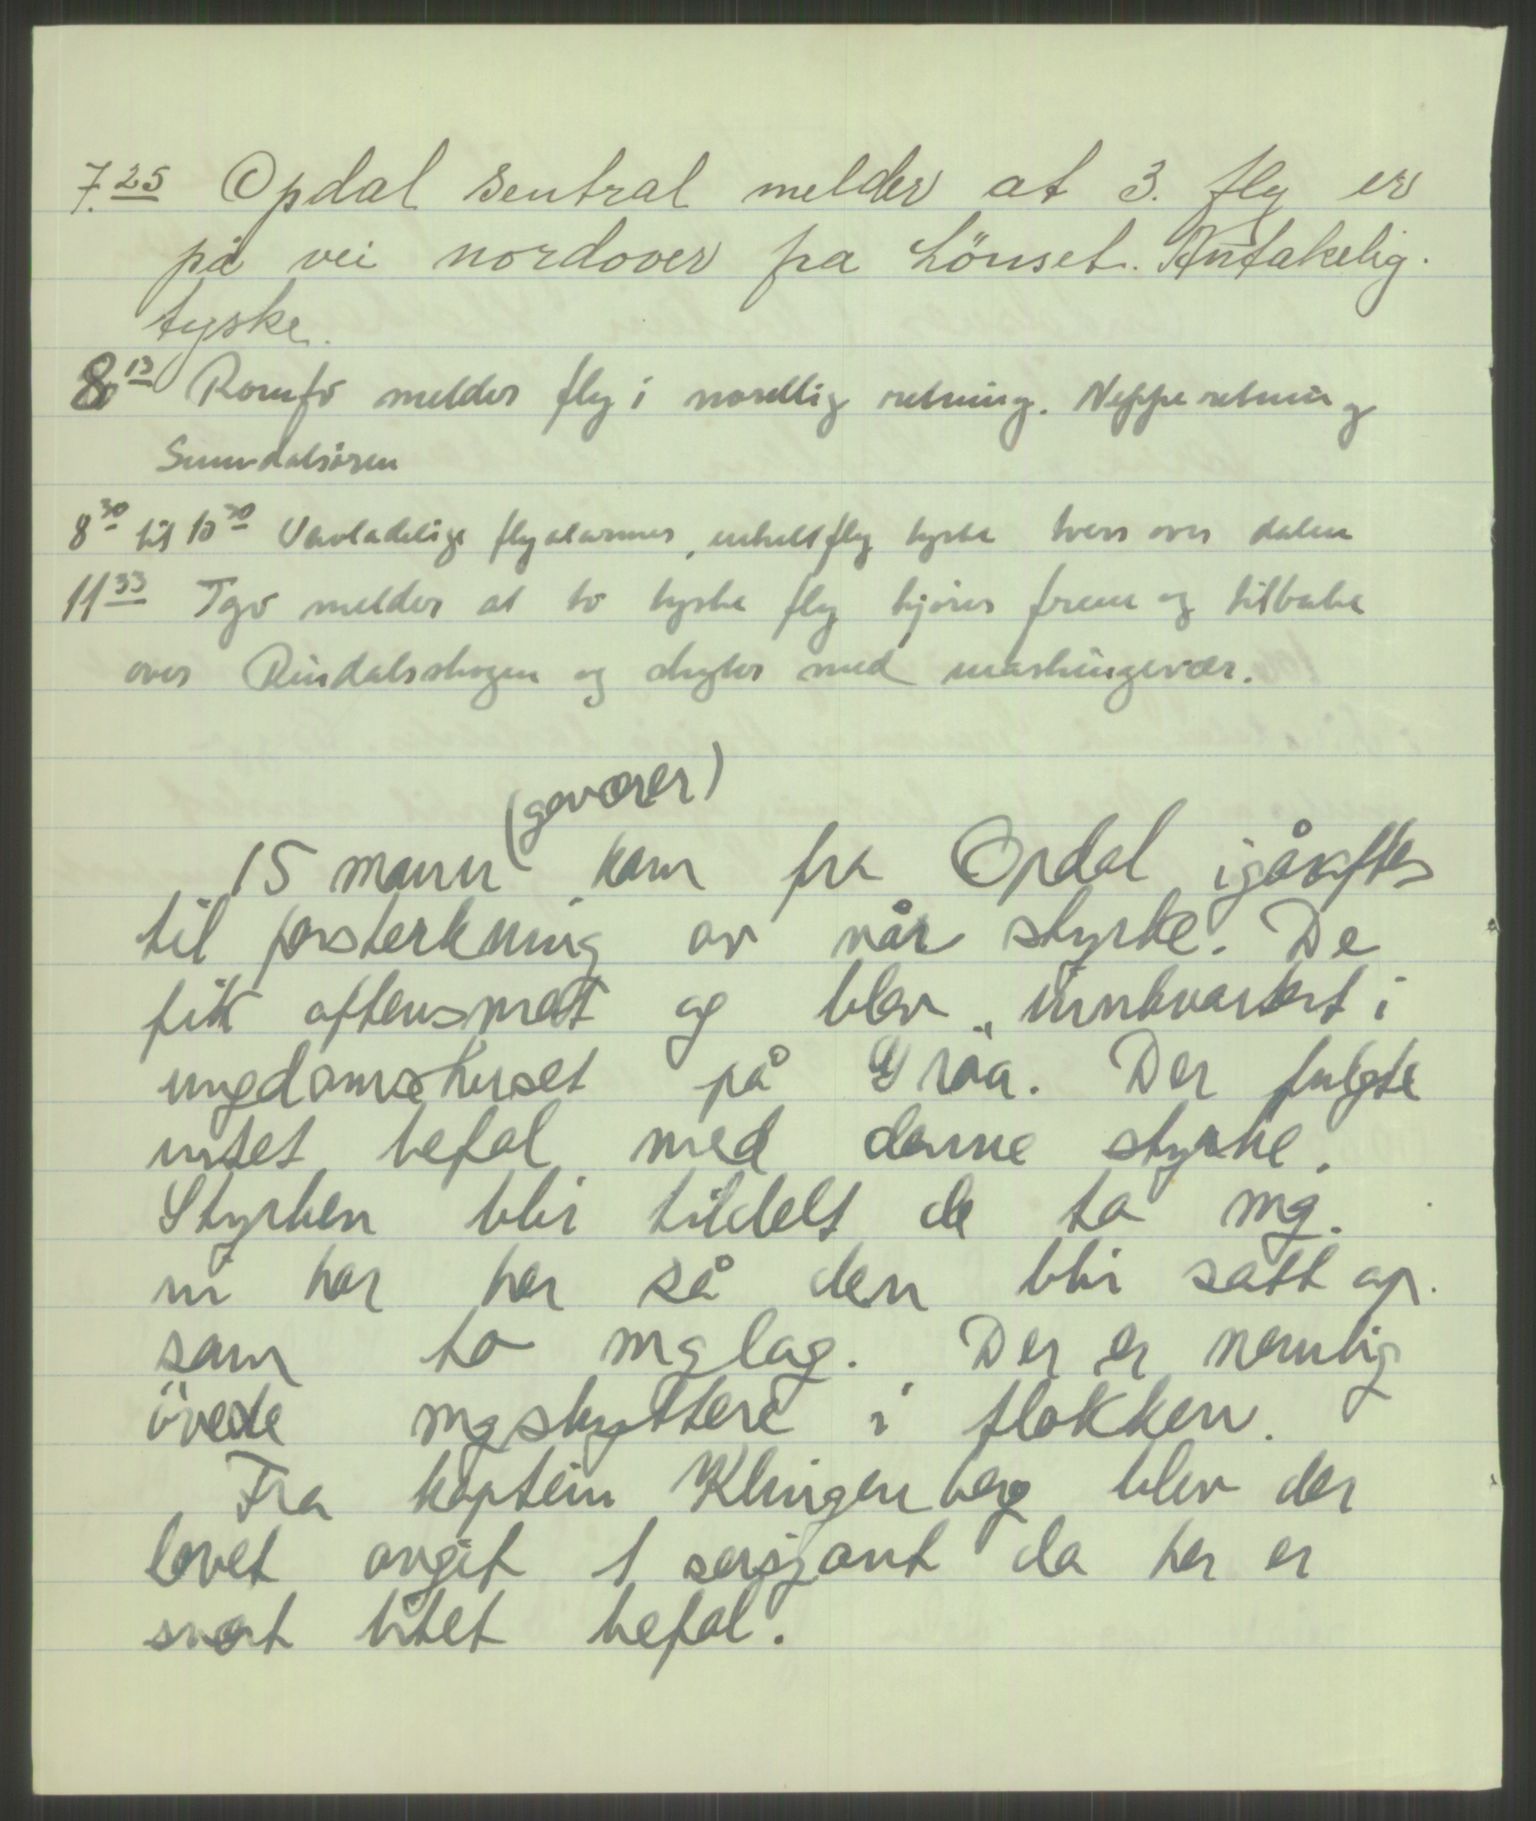 7.25 Opdal sentral melder at 3. fly er
på vei nordover fra Lönset. Antakelig.
tyske.
8 13 Romfo melder fly i nordlig retning. Neppe retning
Sunndalsören
8 30 til 10 30 Uavladelige flyalarmer, enkeltfly tyske tvers over dalen
11 33 Tgo melder at to tyske fly kjörer frem og tilbake
over Rindalsskogen og skyter med maskingevær.
(geværer)
15 mann kom fra Opdal igåraftes
til forsterkning av vår styrke. De
fikk aftensmat og blev innkvartert i
ungdomshuset på Gröa. Der fulgte
intet befal med denne styrke.
Styrken blir tildelt de to mg.
vi har her så den blir satt op.
som to mglag. Der er nemlig
övede mgskyttere i flokken.
Fra kaptein Klingenberg blev der
lovet avgit 1 sersjant da her er
svært litet befal.